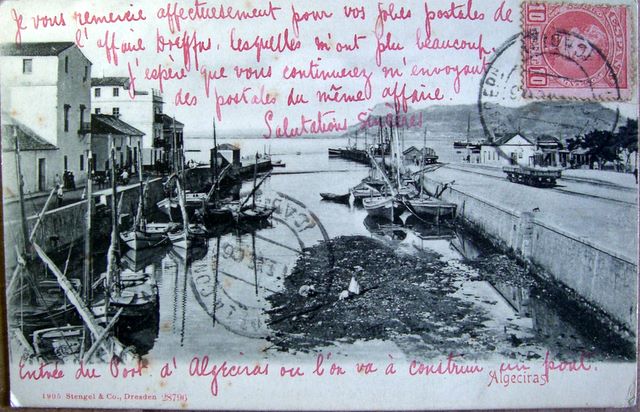 Je vous remercie affectuesement pour vos jolies postales de
l'affaire Dreffus, lesquelles m'ont plu beaucoup.
J'espère que vous continuerez m'envoyant
des postales du même affaire.
Salutations Sincères
10 10
CADIZ
Entrée du Port d'Algeciras ou l'on va à construir un pont.
Algeciras
1905 Stengel & Co., Dresden 28796